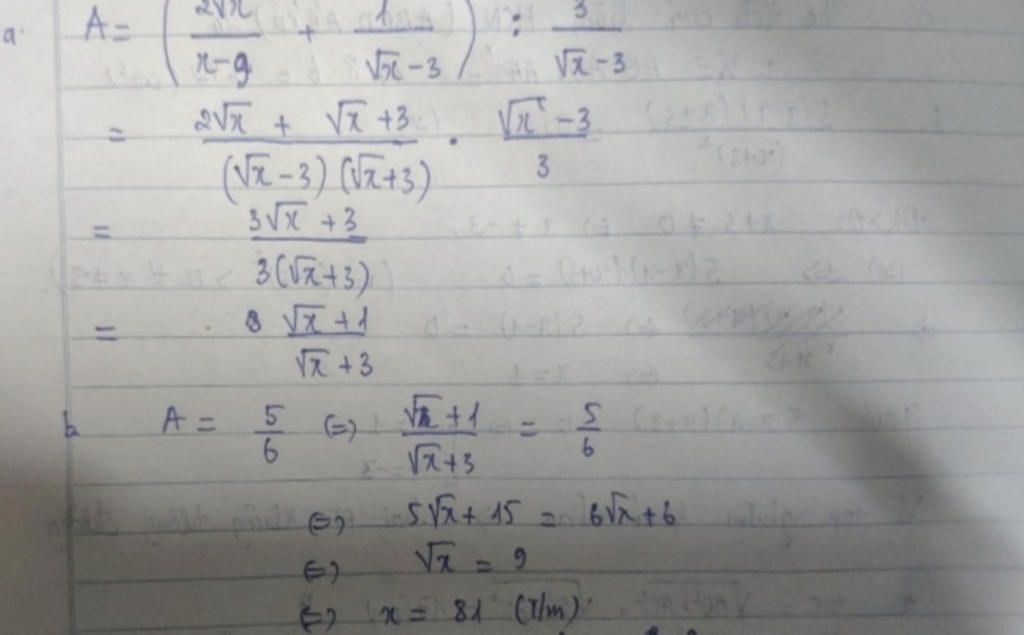 a. A = (2√x / x-9 + 1 / √x - 3) : 3 / √x - 3
= 2√x + √x + 3 / (√x - 3)(√x + 3) . √x - 3 / 3
= 3√x + 3 / 3(√x + 3)
= √x + 1 / √x + 3
b A = 5/6 (=) √x + 1 / √x + 3 = 5/6
(=) 5√x + 15 = 6√x + 6
(=) √x = 9
(=) x = 81 (T/m)